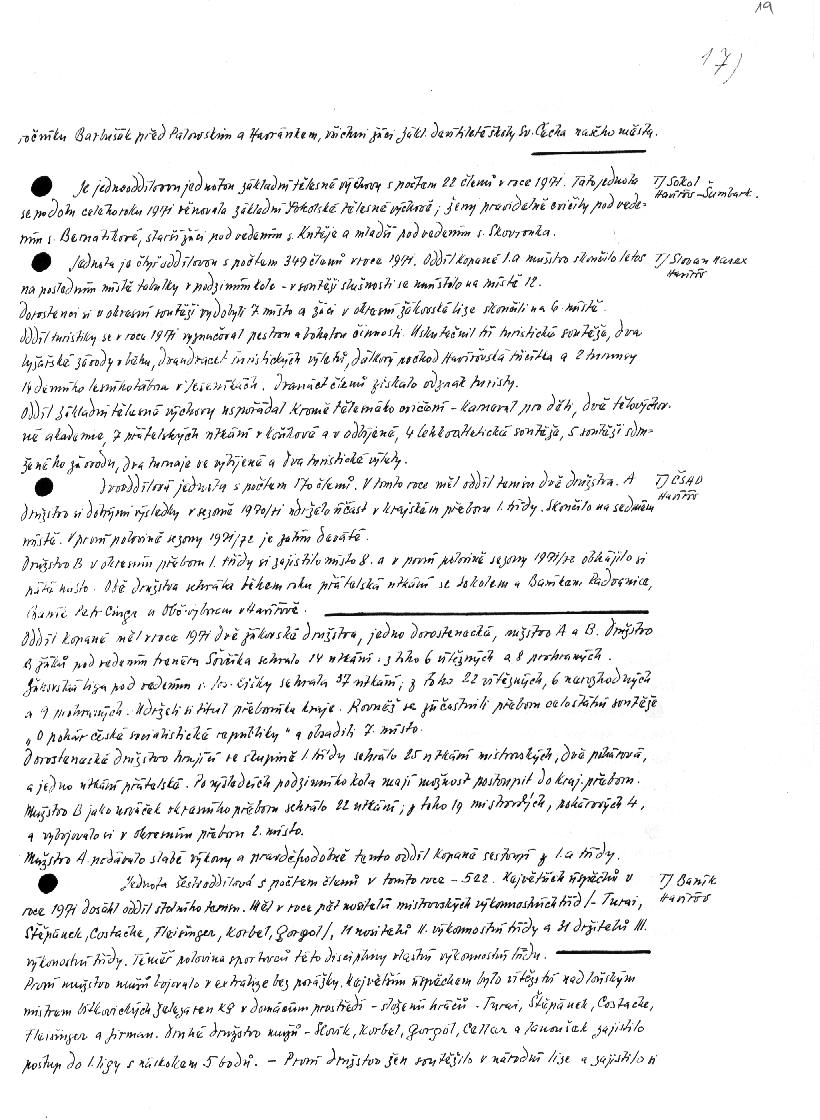 19
17)
ročníku Barbušák před Palowským a Havránkem, všichni žáci zákl. devítileté školy Sv. Čecha našeho města.
Je jednooddílovou jednotou základní tělesné výchovy s počtem 22 členů v roce 1971. Tato jednota
TJ Sokol
Havířov-Šumbark.
se po dobu celého roku 1971 věnovala základní sokolské tělesné výchově; ženy pravidelně cvičily pod vede-
ním s. Bernatíkové, starší žáci pod vedením s. Kněžе a mladší pod vedením s. Skovronka.
Jednota je čtyř oddílovou s počtem 349 členů v roce 1971. Oddíl kopané I.a mužstvo skončilo letos
TJ Slovan Havex
Havířov
na posledním místě tabulky v podzimním kole - v soutěži slušnosti se umístilo na místě 12.
Dorostenci si v okresní soutěži vydobyli 7 místo a žáci v okresní žákovské lize skončili na 6. místě.
Oddíl turistiky se v roce 1971 vyznačoval pestrou a bohatou činností. Uskutečnil tři turistické soutěže, dva
lyžařské závody v běhu, dvanáct turistických výletů, dálkový pochod Havířovská třicítka a 2 turnusy
14 denního letního tábora v Jeseníkách. Dvanáct členů získalo odznak turisty.
Oddíl základní tělesné výchovy uspořádal kromě tělesného cvičení - karneval pro děti, dvě tělovýchov-
né akademie, 7 přátelských utkání v košíkové a v odbíjené, 4 lehkoatletické soutěže, 5 soutěží sdru-
ženého závodu, dva turnaje ve vybíjené a dva turistické výlety.
Dvouddílová jednota s počtem 170 členů. V tomto roce měl oddíl tenisu dvě družstva. A
TJ ČSAD
Havířov
družstvo si dobrými výsledky v sezoně 1970/71 udrželo účast v krajském přeboru I. třídy. Skončilo na sedmém
místě. V první polovině sezony 1971/72 je zatím deváté.
Družstvo B v okresním přeboru I. třídy si zajistilo místo 8. a v první polovině sezony 1971/72 obhájilo si
páté místo. Obě družstva sehrála během roku přátelská utkání se Sokolem a Baníkem Radvanice,
Baník Petr Cingr a Obč. výborem v Havířově.
Oddíl kopané měl v roce 1971 dvě žákovská družstva, jedno dorostenecké, mužstvo A a B. Družstvo
B žáků pod vedením trenéra Sovíka sehrálo 14 utkání: z toho 6 vítězných a 8 prohraných.
Žákovská liga pod vedením s. sehrála 37 utkání; z toho 22 vítězných, 6 nerozhodných
a 9 prohraných. Udrželi si titul přeborníka kraje. Rovněž se zúčastnili přeboru celostátní soutěže
„O pohár české socialistické republiky" a obsadili 7. místo.
Dorostenecké družstvo hrající ve skupině I. třídy sehrálo 25 utkání mistrovských, dvě pohárová,
a jedno utkání přátelské. Po výsledcích podzimního kola mají možnost postoupit do kraj. přeboru.
Mužstvo B jako nováček okresního přeboru sehrálo 22 utkání; z toho 19 mistrovských, pohárových 4,
a vybojovalo si v okresním přeboru 2. místo.
Mužstvo A podávalo slabé výkony a pravděpodobně tento oddíl kopané sestoupí z I.a třídy.
Jednota šestioddílová s počtem členů v tomto roce - 522. Největších úspěchů v
TJ Baník
Havířov
roce 1971 dosáhl oddíl stolního tenisu. Měl v roce pět nositelů mistrovských výkonnostních tříd /- Turai,
Štěpánek, Costache, Fleisinger, Korbel, Gorgol/, 11 nositelů II. výkonnostní třídy a 31 držitelů III.
výkonostní třídy. Téměř polovina sportovců této disciplíny vlastní výkonnostní třídy.
První mužstvo mužů bojovalo v extralize bez porážky. Největším úspěchem bylo vítězství nad loňským
mistrem Vítkovických železáren KG v domácím prostředí - složení hráčů - Turai, Štěpánek, Costache,
Fleisinger a Jirman. Druhé družstvo mužů - Slovík, Korbel, Gorgol, Cellar a Janoušek zajistilo
postup do I. ligy s náskokem 5 bodů. - První družstvo žen soutěžilo v národní lize a zajistilo si